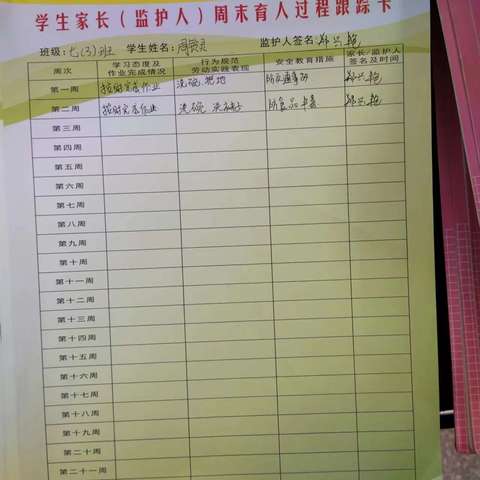 学生家长（监护人）周末育人过程跟踪卡
班级:七(3)班 学生姓名: 监护人签名:郑兴艳
周次 学习态度及作业完成情况 行为规范劳动实践表现 安全教育措施 家长/监护人签名及时间
第一周 按时完成作业 洗碗 扫地 防交通事故 郑兴艳
第二周 按时完成作业 洗碗 洗袜子 防食品中毒 郑兴艳
第三周
第四周
第五周
第六周
第七周
第八周
第九周
第十周
第十一周
第十二周
第十三周
第十四周
第十五周
第十六周
第十七周
第十八周
第十九周
第二十周
第二十一周